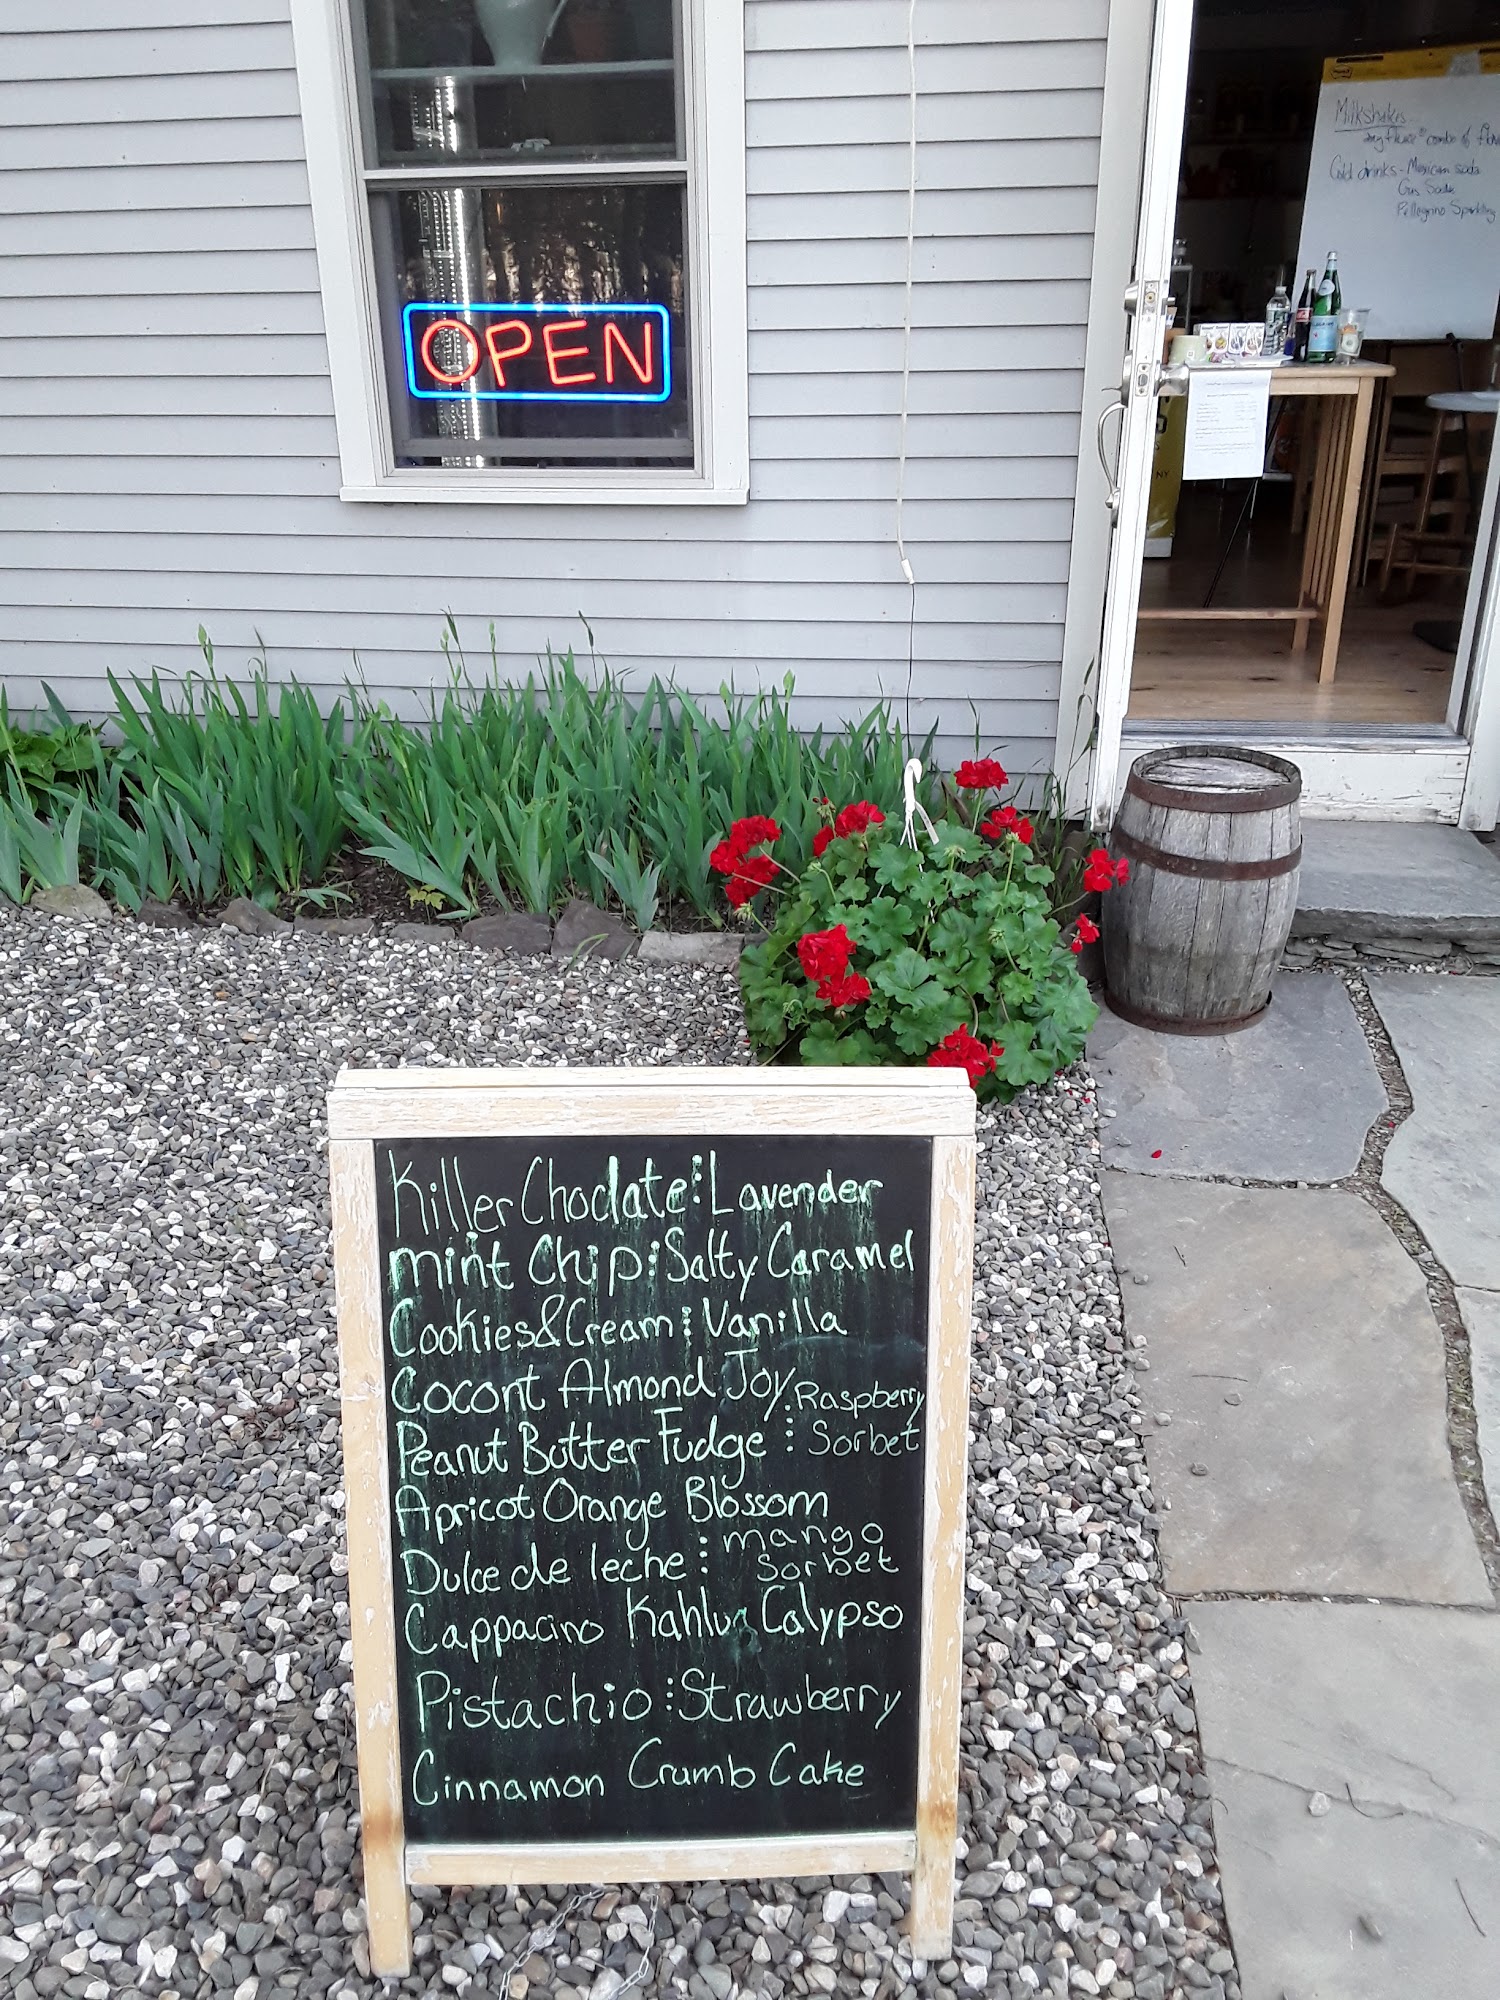 OPEN
Milkshakes
Cold drinks - Mexican soda
Gus Soda
Pellegrino Sparkling
Killer Choclate : Lavender
mint Chip : Salty Caramel
Cookies & Cream : Vanilla
Cocont Almond Joy
Raspberry
Peanut Butter Fudge : Sorbet
Apricot Orange Blossom
Dulce de leche : mango
Sorbet
Cappacino Kahlua Calypso
Pistachio : Strawberry
Cinnamon Crumb Cake